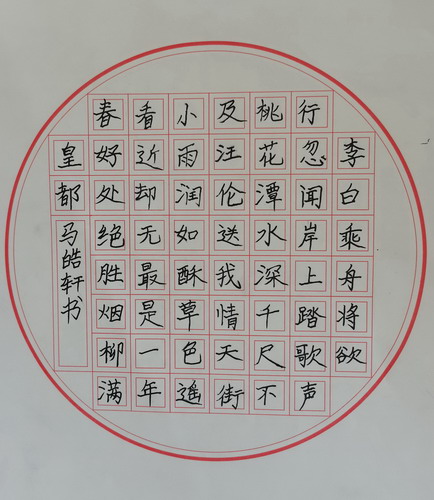 李白乘舟将欲
行忽闻岸上踏歌声
桃花潭水深千尺不
及汪伦送我情天街
小雨润如酥草色遥
看近却无最是一年
春好处绝胜烟柳满
皇都
马皓轩书